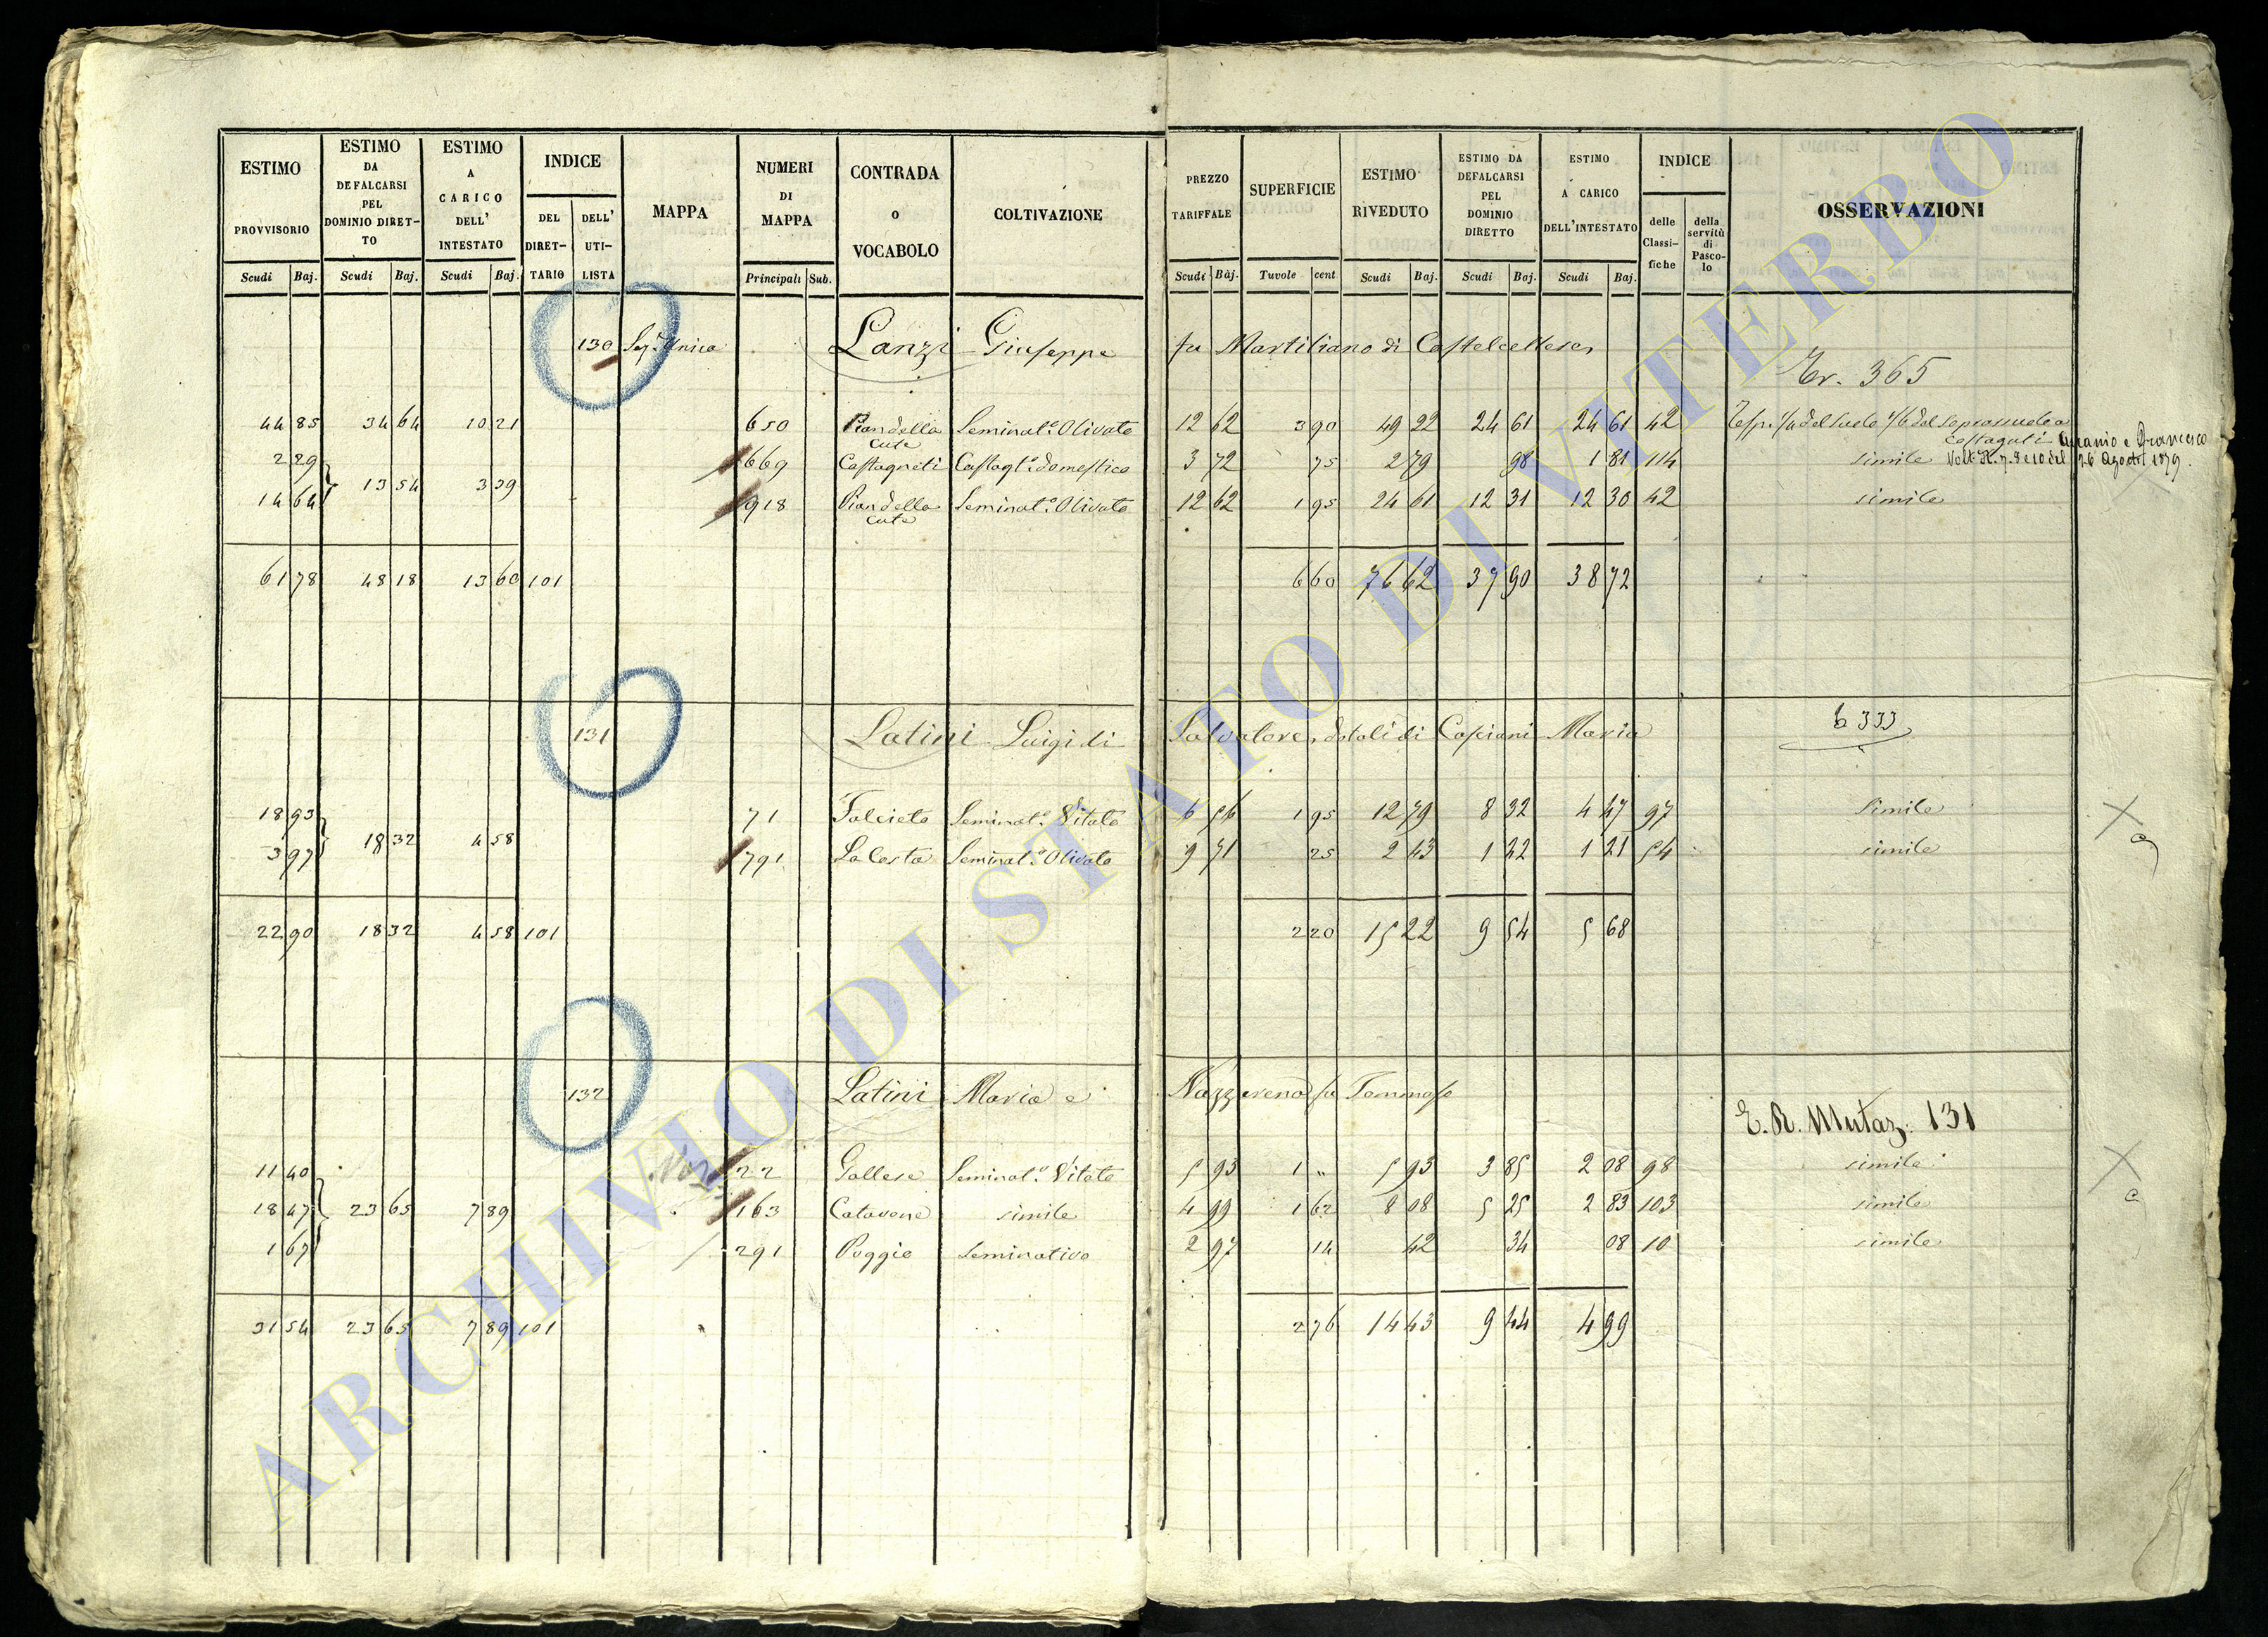 ESTIMO PROVVISORIO
ESTIMO DA DEFALCARSI PEL DOMINIO DIRET-TO
ESTIMO A CARICO DELL' INTESTATO
INDICE
DEL DIRET-TARIO
DELL' UTI-LISTA
MAPPA
NUMERI DI MAPPA
CONTRADA O VOCABOLO
COLTIVAZIONE
PREZZO TARIFFALE
SUPERFICIE
ESTIMO RIVEDUTO
ESTIMO DA DEFALCARSI PEL DOMINIO DIRETTO
ESTIMO A CARICO DELL'INTESTATO
INDICE
delle Classi-fiche
della servitù di Pasco-lo
OSSERVAZIONI
Scudi Baj. Scudi Baj. Scudi Baj. Principali Sub. Scudi Baj. Tavole cent Scudi Baj. Scudi Baj. Scudi Baj.
130 Sez.e Unica Lanzi Giuseppe fu Martiliano di Castelcellese
365
44 85 34 64 10 21 650 Pian della cute Seminat.o Olivato 12 62 3 90 49 22 24 61 24 61 42
2 29 669 Castagneti Castag.to domestico 3 72 75 2 79 98 1 81 114 simile
26 Agosto 1879.
13 54 3 39
14 64 918 Pian della cute Seminat.o Olivato 12 62 1 95 24 61 12 31 12 30 42 simile
61 78 48 18 13 60 101 6 60 76 62 37 90 38 72
131 Latini Luigi di Salvatore, dotali di Capiani Maria
333
18 93 71 Falcieto Seminat.o Vitato 6 56 1 95 12 79 8 32 4 47 97 Simile
18 32 4 58
3 97 791 La Costa Seminat.o Olivato 9 71 25 2 43 1 22 1 21 54 simile
22 90 18 32 4 58 101 2 20 15 22 9 54 5 68
132 Latini Maria e Nazzarena fu Tommaso
E. R. Mutaz. 131
11 40 22 Gallese Seminat.o Vitato 5 93 1 " 5 93 3 85 2 08 98 simile
18 47 23 65 7 89 163 Catavone simile 4 99 1 62 8 08 5 25 2 83 103 simile
1 67 291 Poggio Seminativo 2 97 14 42 34 08 10 simile
31 54 23 65 7 89 101 2 76 14 43 9 44 4 99
ARCHIVIO DI STATO DI VITERBO